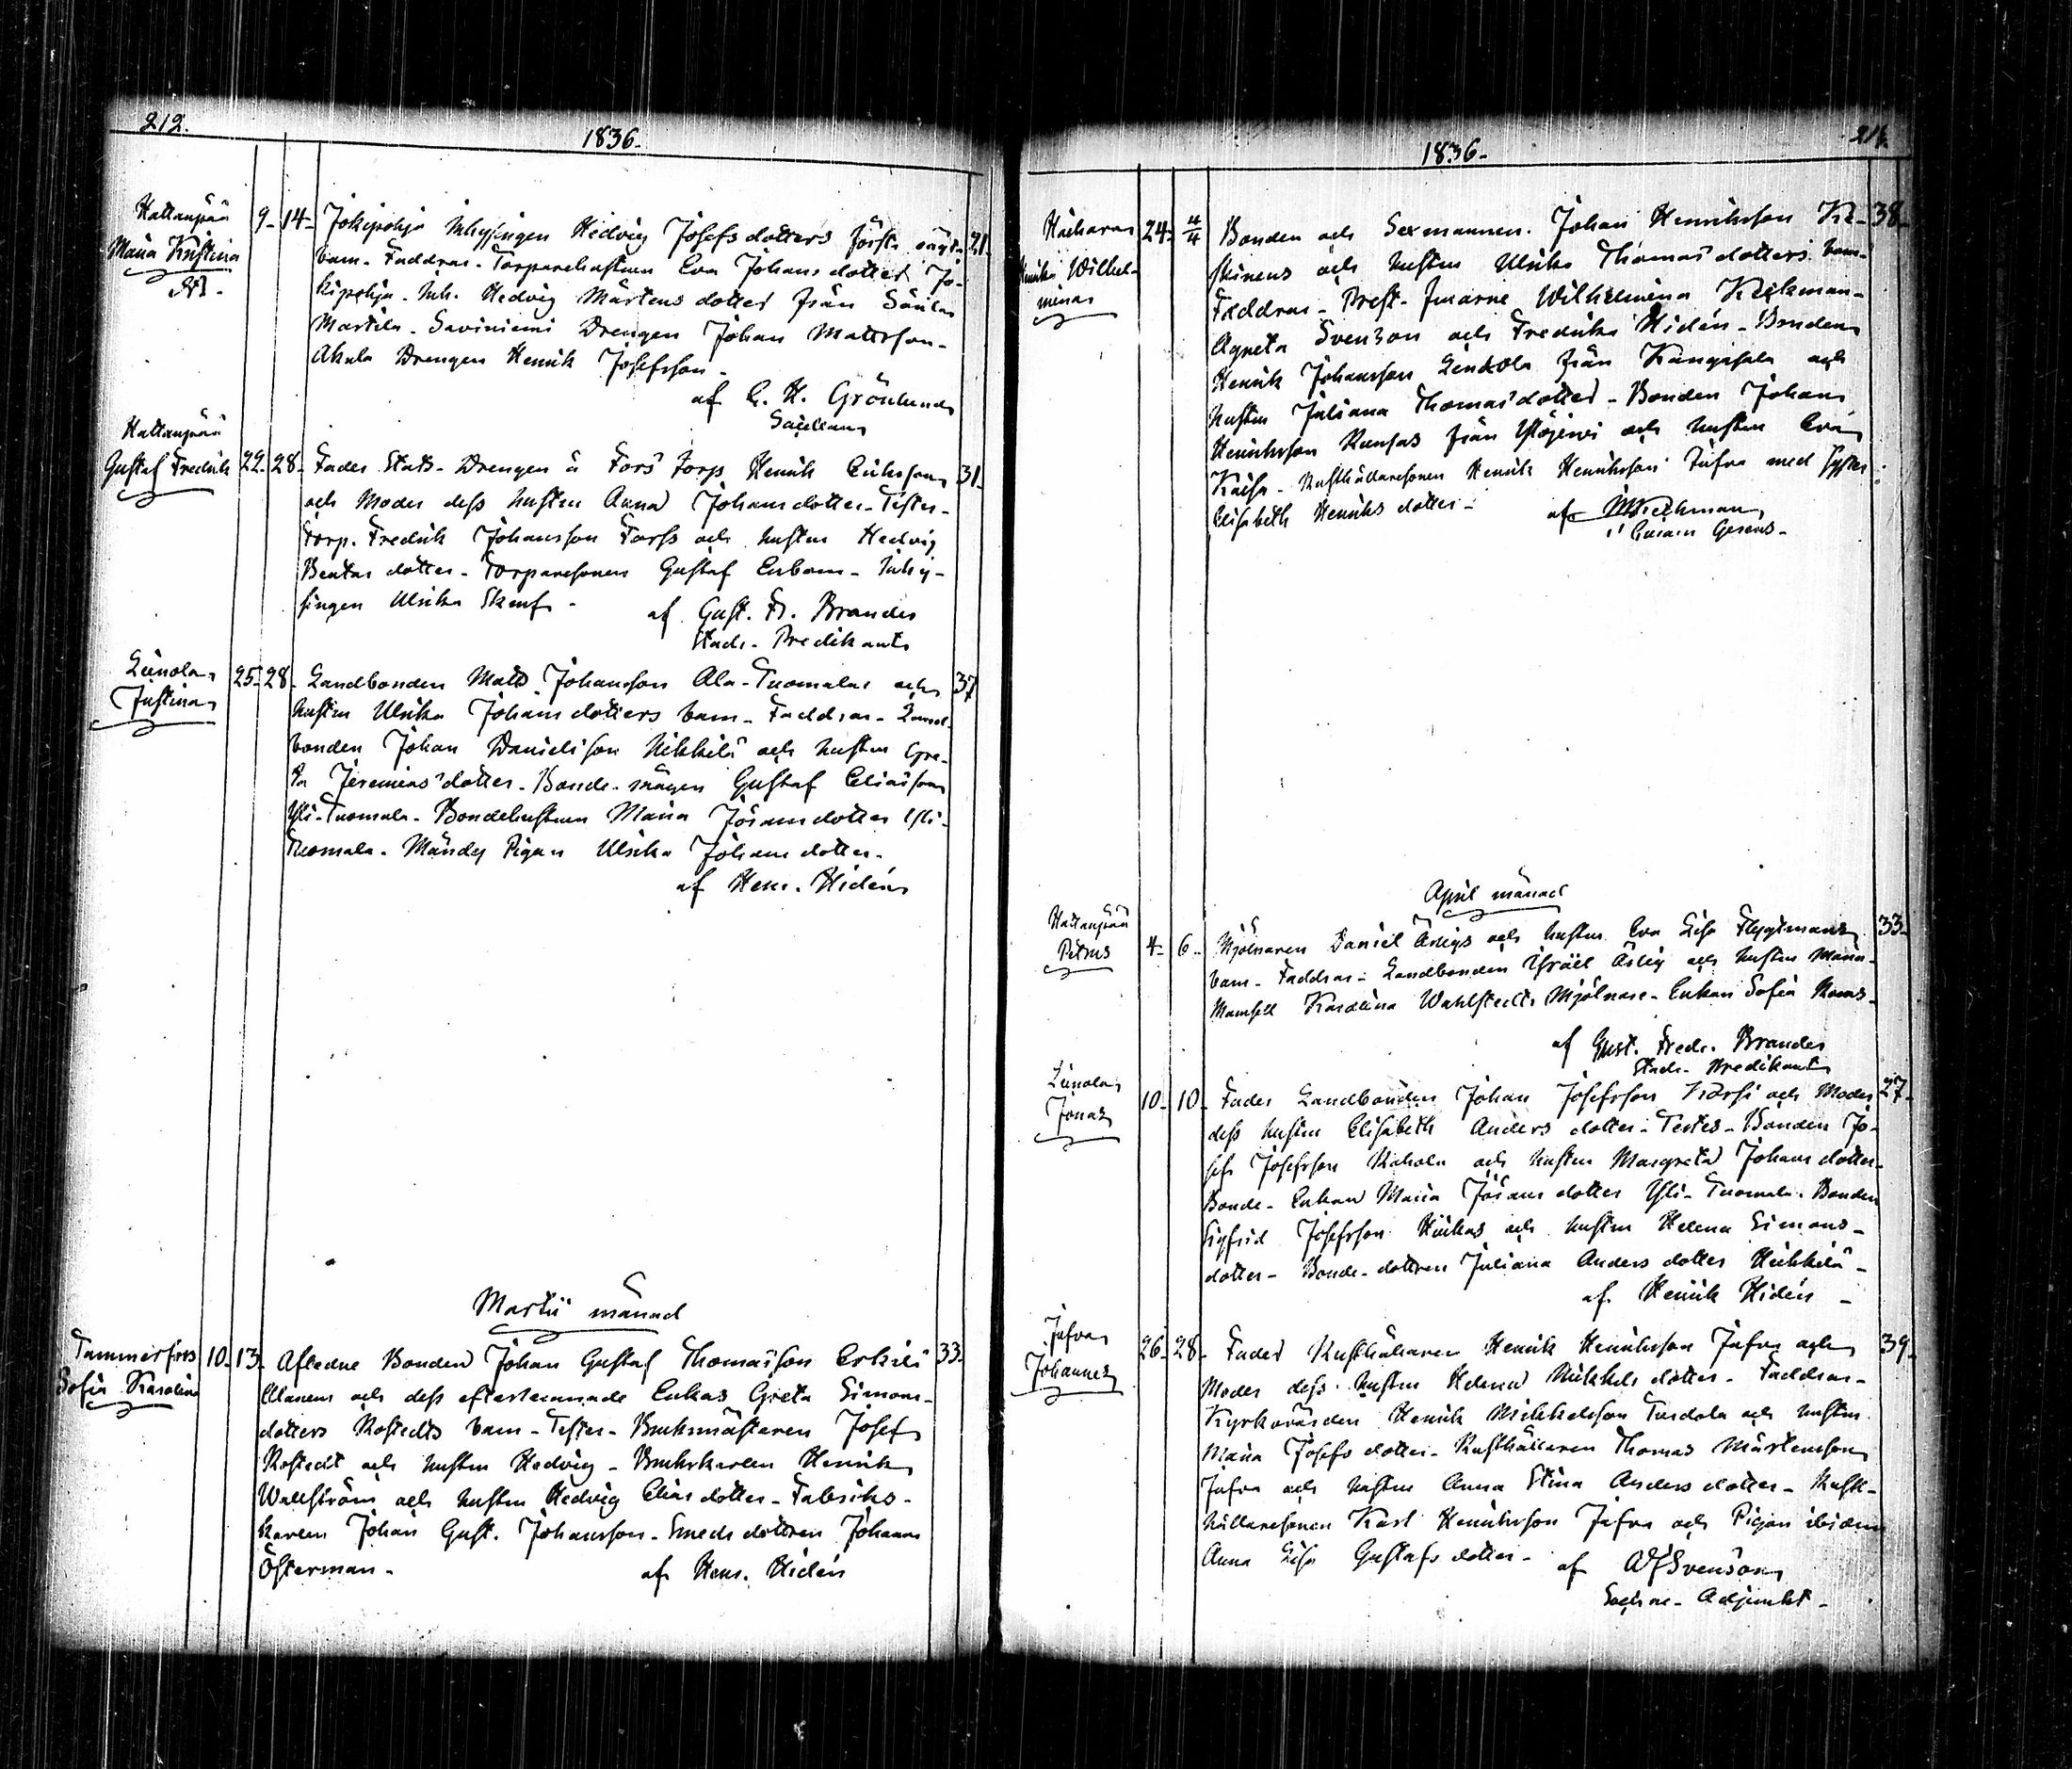 212.
1836.
Hattanpää
Maria Kristina
9. 14. Jokipohja Inhysingen Hedvig Josefsdotters första oägt. 21.
barn. Faddrar. Torparehustrun Eva Johans dotter Jo-
kipohja. Inh. Hedvig Mårtens dotter från
Marttila. Saviniemi Drengen Johan Mattsson.
Akala Drengen Henrik Josefsson.
af C. H. Grönlund
Hattanpää
Gustaf Fredrik 22. 28. Fader Stats-Drengen å Fors torp Henrik Eriksson 31.
och Moder dess hustru Anna Johansdotter. Testes.
Torp. Fredrik Johansson Forss och hustru Hedvig
Bentas dotter. Torparesonen Gustaf Enbom. Inhy-
singen Ulrika
af Gust. Fr. Brander
Stads-Predikant
Liinola
Justina
25. 28. Landbonden Matts Johansson Ala-Tuomala och 37
hustru Ulrika Johansdotters barn. Faddrar. Land-
bonden Johan Danielsson Nikkilä och hustru Gre-
ta Jeremias dotter. Bonde-mågen Gustaf Eliasson
Yli-Tuomala. Bondehustrun Maria Jöransdotter Yli-
Tuomala. Pigan Ulrika Johans dotter.
af Henr. Hidén
Martii månad
Tammerfors
Sofia Karolina
10. 13. Afledne Bonden Johan Gustaf Thomasson Erkilä 33.
Ollanens och dess efterlemnade Enkas Greta Simons-
dotters Rostedts barn. Testes. Bruksmästaren Josef
Rostedt och hustru Hedvig. Brukskarlen Henrik
Wallström och hustru Hedvig Elias dotter. Fabriks-
karlen Johan Gust. Johansson. Smeds dottren Johanna
Österman.
af Henr. Hidén
1836.
214.
Haihara
Wilhel-
mina
24. 4/4 Bonden och Sexmannen Johan Henriksson 38.
och hustru Ulrika Thomas dotters barn.
Faddrar. Prest-fruarne Wilhelmina Kjekman.
Agneta Svenson och Fredrika Hidén. Bonden
Henrik Johansson Linkola från Kangasala och
hustru Juliana Thomas dotter. Bonden Johan
Henriksson Kansas från Ylöjärvi och hustru Eva
Kaisa. Rusthållaresonen Henrik Henriksson Jufva med syster
Elisabeth Henriks dotter.
af
April månad
Hattanpää
Petrus
4. 6. Mjölnaren Daniel Ärligs och hustru Eva Lisa Flygtmans 33.
barn. Faddrar. Landbonden Israël Ärlig och hustru Maria.
Mamsell Karolina Wahlstedt. Mjölnare-Enkan Sofia
af Gust. Fredr. Brander
Stads-Predikant
Liinola
Jonas
10. 10. Fader Landbonden Johan Josefsson Korsi och Moder 27.
dess hustru Elisabeth Anders dotter. Testes. Bonden Jo-
sef Josefsson Kahola och hustru Margreta Johans dotter.
Bonde-Enkan Maria Jörans dotter Yli-Tuomala. Bonden
Sigfrid Josefsson Hiukas och hustru Helena Simons-
dotter. Bonde-dottren Juliana Anders dotter Heikkilä.
af Henrik Hidén
Jufva
Johannes
26. 28. Fader Rusthållaren Henrik Henriksson Jufva och 39.
Moder dess hustru Helena Mikkels dotter. Faddrar.
Kyrkovärden Henrik Mikkelsson Turdola och hustru
Maria Josefs dotter. Rusthållaren Thomas Mårtensson
Jufva och hustru Anna Stina Anders dotter. Rust-
hållaresonen Karl Henriksson Jufva och Pigan ibidem
Anna Lisa Gustafs dotter.
af Svenson
Sockne-Adjunkt.